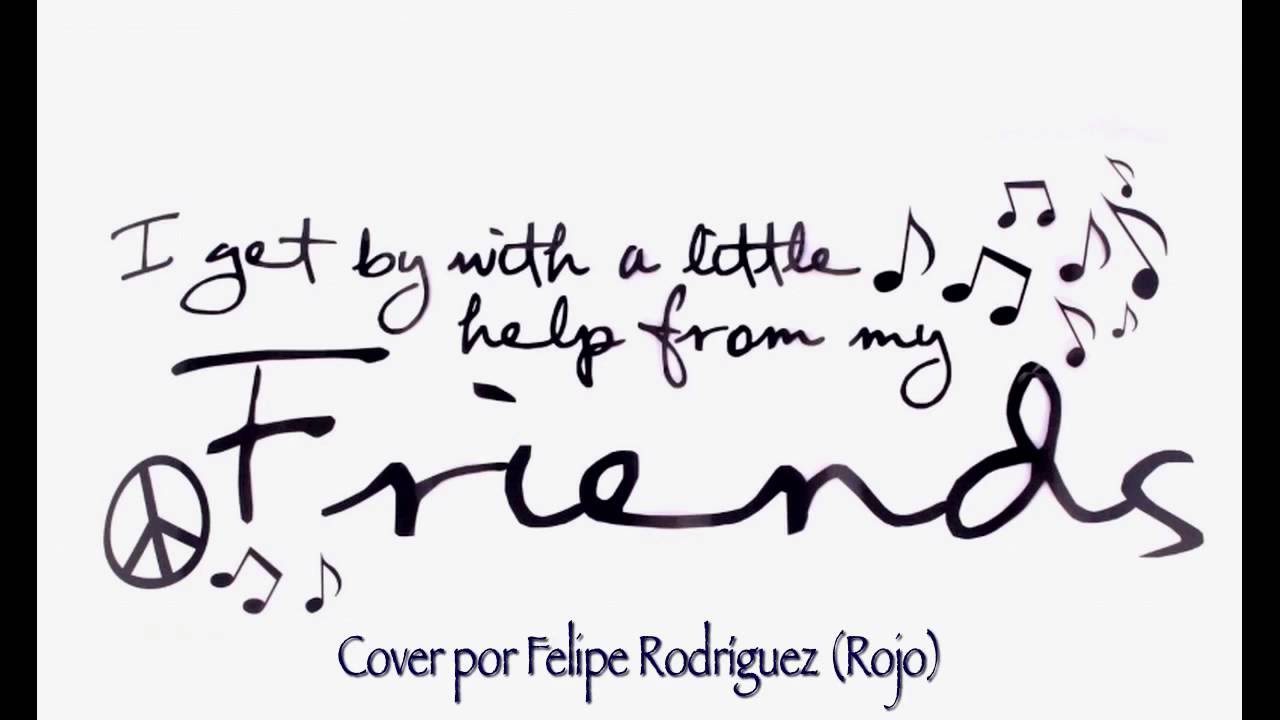 I get by with a little
help from my
Friends
Cover por Felipe Rodríguez (Rojo)